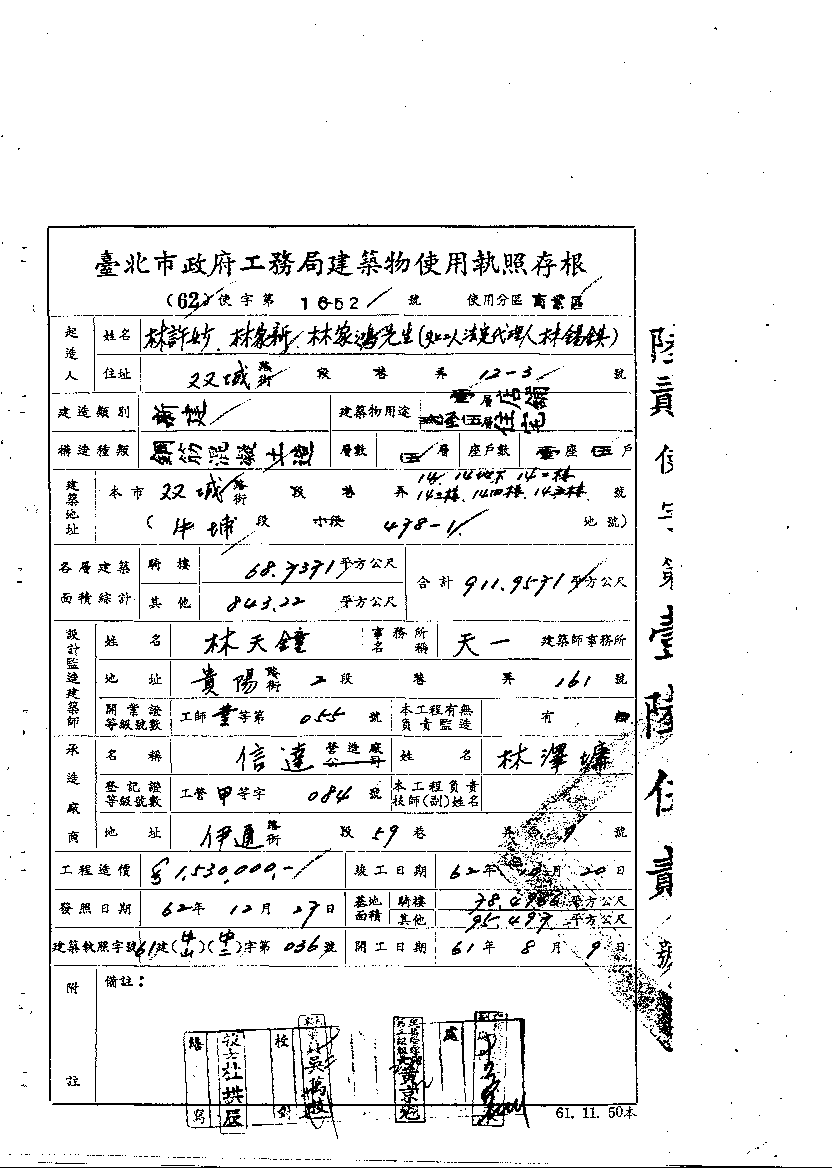 臺北市政府工務局建築物使用執照存根
(62)使字第 1652 號 使用分區 商業區
起造人 姓名 林許妙、林家新、林家鴻先生(如二人法定代理人林錫鎮)
住址 双城 路街 段 巷 弄 12-3 號
建造類別 新建 建築物用途 壹層店舖 層住宅
構造種類 鋼筋混凝土造 層數 伍層 座戶數 壹座 伍戶
建築地址 本市 双城 路街 段 巷 弄 14. 14地下 14二樓 14三樓. 14四樓. 14五樓 號
(牛埔段 小段 478-1 地號)
各層建築面積綜計 騎樓 68.7371 平方公尺 合計 911.9571 平方公尺
其他 843.22 平方公尺
設計監造建築師 姓名 林天鐘 事務所名稱 天一 建築師事務所
地址 貴陽 路街 2段 巷 弄 161 號
開業證等級號數 工師 等第 055 號 本工程有無負責監造 有
承造廠商 名稱 信達 營造廠公司 姓名 林澤墉
登記證等級號數 工營甲等字 084 號 本工程負責技師(副)姓名
地址 伊通 路街 段 59 巷 弄 9 號
工程造價 1,530,000.- 竣工日期 62年 10月 20日
發照日期 62年 12月 27日 基地面積 騎樓 平方公尺
其他 95.497 平方公尺
建築執照字號 61建(中山)(中二)字第 036 號 開工日期 61年 8月 9日
附註 備註:
繕寫 校對
61. 11. 50本
陸貳使字第壹陸伍貳號